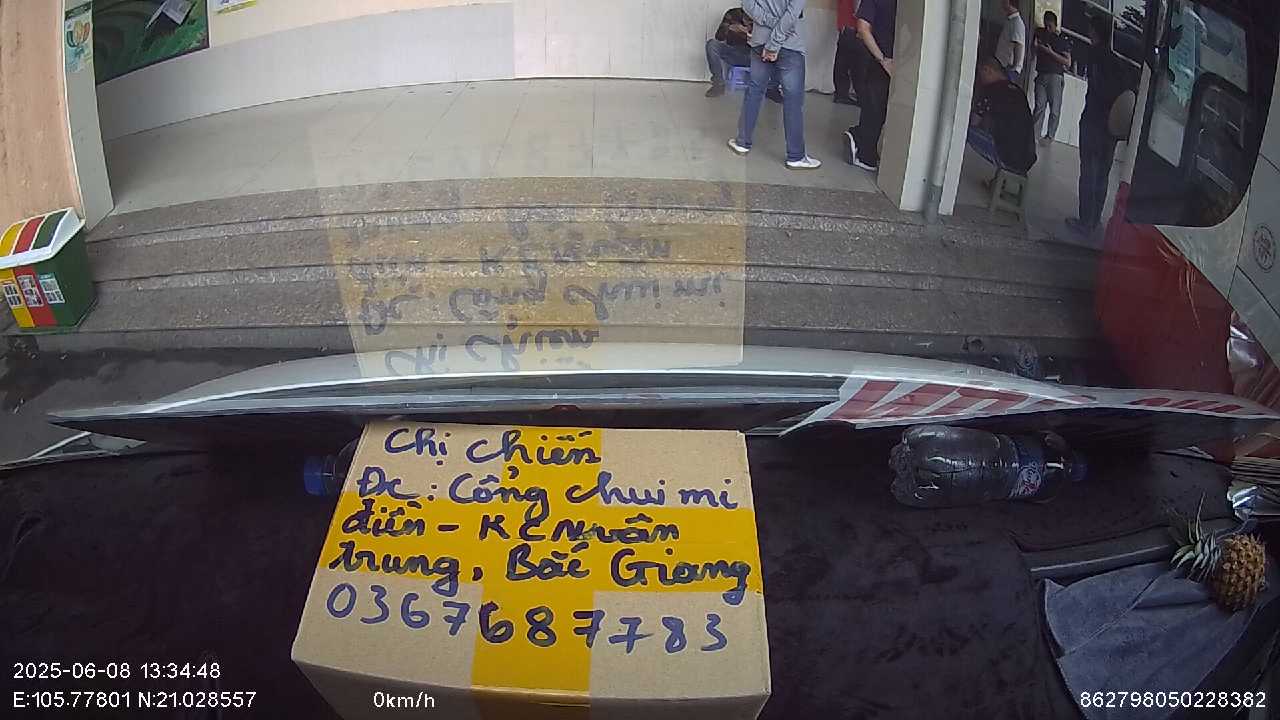 Chị Chiến
Đc: Cổng chui mi
điền - KCN Vân
trung, Bắc Giang
0367687783
2025-06-08 13:34:48
E:105.77801 N:21.028557
0km/h
862798050228382